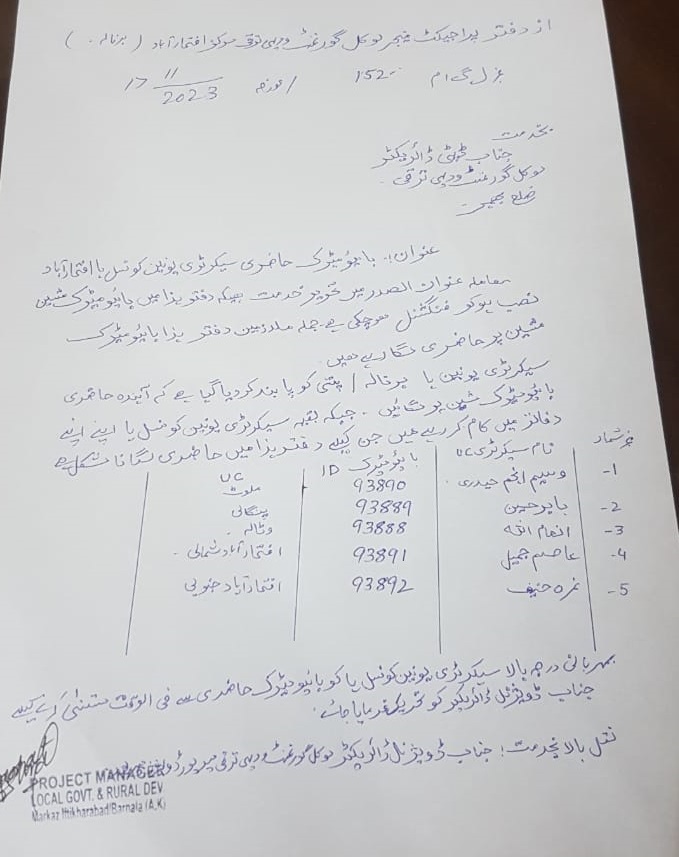 از دفتر پراجیکٹ منیجر لوکل گورنمنٹ و دیہی ترقی مرکز افتخارآباد (برنالہ)
1520 / مورخہ 17 11 2023
بخدمت
جناب ڈپٹی ڈائریکٹر
لوکل گورنمنٹ و دیہی ترقی
ضلع بھمبر
عنوان:۔ بائیومیٹرک حاضری سیکرٹری یونین کونسل ہا افتخارآباد
معاملہ عنوان الصدر میں تحریر خدمت ہیکہ دفتر ہذا میں بائیومیٹرک مشین
نصب ہوکر فنکشنل ہوچکی ہے۔ جملہ ملازمین دفتر ہذا بائیومیٹرک
مشین پر حاضری لگا رہے ہیں۔
سیکرٹری یونین ہا برنالہ / پتنی کو پابند کردیا گیا ہے کہ آئندہ حاضری
بائیومیٹرک مشین پر لگائیں۔ جبکہ بقیہ سیکرٹری یونین کونسل ہا اپنے اپنے
دفاتر میں کام کررہے ہیں جن کیلئے دفتر ہذا میں حاضری لگانا مشکل ہے
نمبرشمار نام سیکرٹری UC بائیومیٹرک ID UC
1- وسیم انجم حیدری 93890 ملوٹ
2- بابر حسین 93889 پنگالی
3- انعام اللہ 93888 وٹالہ
4- عاصم جمیل 93891 افتخارآباد شمالی
5- نمرہ حنیف 93892 افتخارآباد جنوبی
بمہربانی درجہ بالا سیکرٹری یونین کونسل ہا کو بائیومیٹرک حاضری سے فی الوقت مستثنیٰ کرانے کیلئے
جناب ڈویژنل ڈائریکٹر کو تحریک فرمایا جائے۔
نقل بالا بخدمت: جناب ڈویژنل ڈائریکٹر لوکل گورنمنٹ و دیہی ترقی میرپور ڈویژن
PROJECT MANAGER
LOCAL GOVT. & RURAL DEV
Markaz Iftikharabad/Barnala (A.K)